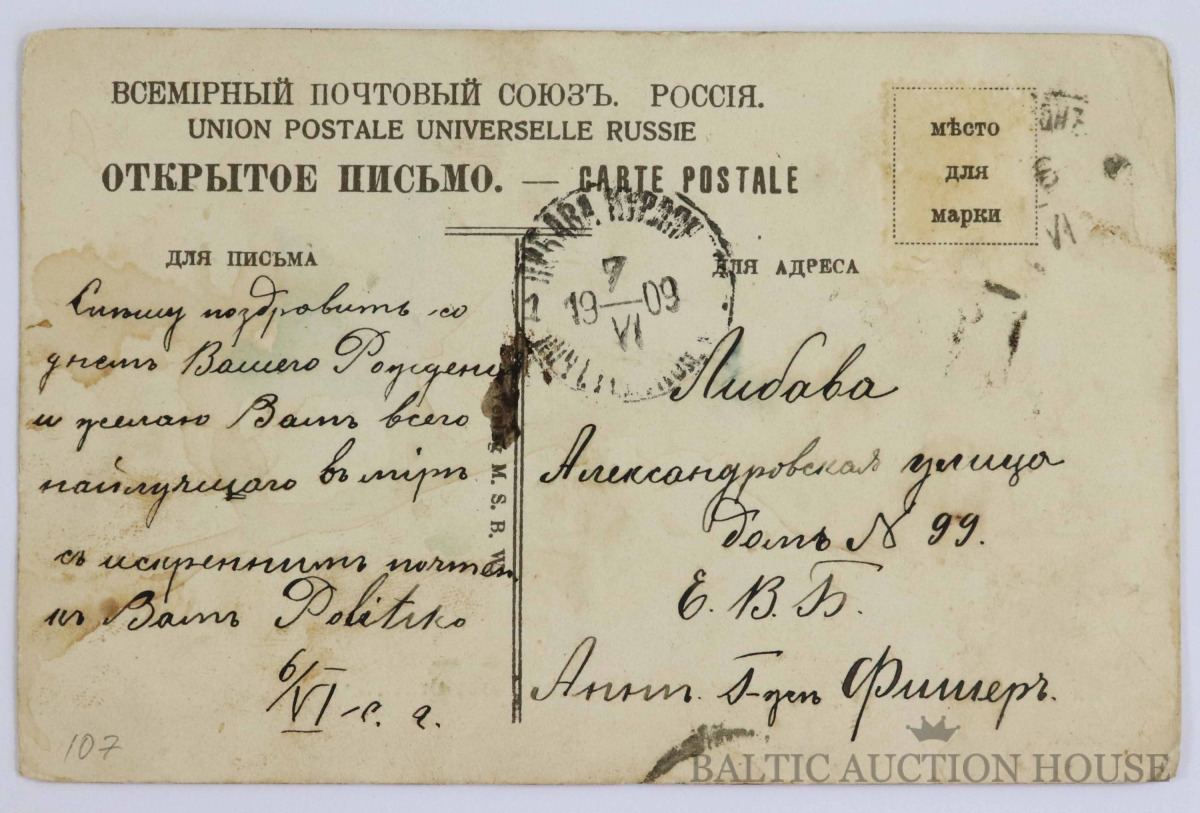 ВСЕМІРНЫЙ ПОЧТОВЫЙ СОЮЗЪ. РОССІЯ.
UNION POSTALE UNIVERSELLE RUSSIE
ОТКРЫТОЕ ПИСЬМО. — CARTE POSTALE
мѣсто
для
марки
ДЛЯ ПИСЬМА
Спѣшу поздровить со
днемъ Вашего Рожденія
и желаю Вамъ всего
найлучщаго въ мірѣ
съ искреннимъ почтен.
къ Вамъ Politsko
6/VI с. г.
107
M. S. B. W.
ЛИБАВА КУРЛЯН
7
19—09
VI
1
ДЛЯ АДРЕСА
Либава
Александровская улица
домъ N 99.
Е. В. Б.
Аннѣ Фишеръ.
VI
BALTIC AUCTION HOUSE